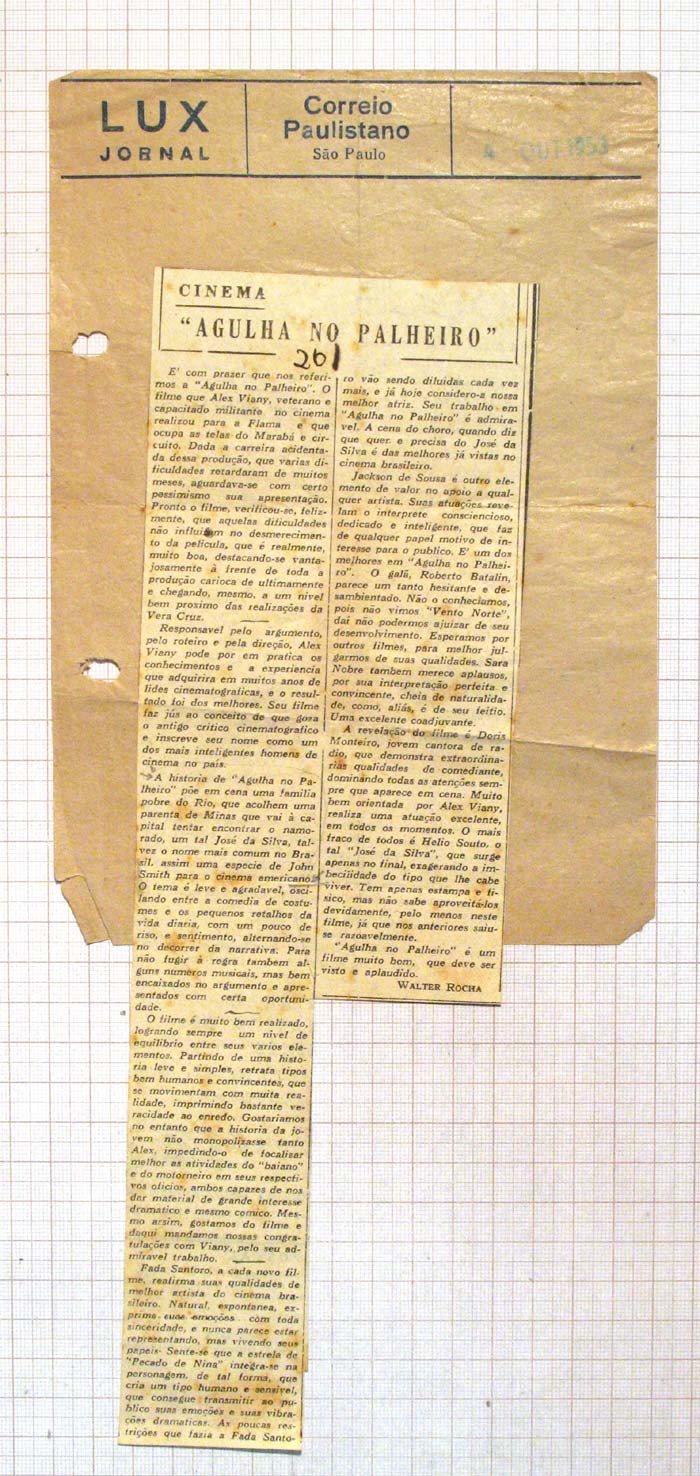 LUX
JORNAL
Correio
Paulistano
São Paulo
4 OUT 1953
CINEMA
"AGULHA NO PALHEIRO"
201
E' com prazer que nos referi-
mos a "Agulha no Palheiro". O
filme que Alex Viany, veterano e
capacitado militante no cinema
realizou para a Flama e que
ocupa as telas do Marabá e cir-
cuito. Dada a carreira acidenta-
da dessa produção, que varias di-
ficuldades retardaram de muitos
meses, aguardava-se com certo
pessimismo sua apresentação.
Pronto o filme, verificou-se, feliz-
mente, que aquelas dificuldades
não influiram no desmerecimen-
to da pelicula, que é realmente,
muito boa, destacando-se vanta-
josamente à frente de toda a
produção carioca de ultimamente
e chegando, mesmo, a um nivel
bem proximo das realizações da
Vera Cruz.
Responsavel pelo argumento,
pelo roteiro e pela direção, Alex
Viany pode por em pratica os
conhecimentos e a experiencia
que adquirira em muitos anos de
lides cinematograficas, e o resul-
tado foi dos melhores. Seu filme
faz jús ao conceito de que goza
o antigo critico cinematografico
e inscreve seu nome como um
dos mais inteligentes homens de
cinema no país.
A historia de "Agulha no Pa-
lheiro" põe em cena uma familia
pobre do Rio, que acolhem uma
parenta de Minas que vai à ca-
pital tentar encontrar o namo-
rado, um tal José da Silva, tal-
vez o nome mais comum no Bra-
sil, assim uma especie de John
Smith para o cinema americano.
O tema é leve e agradavel, osci-
lando entre a comedia de costu-
mes e os pequenos retalhos da
vida diaria, com um pouco de
riso, e sentimento, alternando-se
no decorrer da narrativa. Para
não fugir à regra tambem al-
guns numeros musicais, mas bem
encaixados no argumento e apre-
sentados com certa oportuni-
dade.
O filme é muito bem realizado,
logrando sempre um nivel de
equilibrio entre seus varios ele-
mentos. Partindo de uma histo-
ria leve e simples, retrata tipos
bem humanos e convincentes, que
se movimentam com muita rea-
lidade, imprimindo bastante ve-
racidade ao enredo. Gostariamos
no entanto que a historia da jo-
vem não monopolizasse tanto
Alex, impedindo-o de focalizar
melhor as atividades do "baiano"
e do motorneiro em seus respecti-
vos oficios, ambos capazes de nos
dar material de grande interesse
dramatico e mesmo comico. Mes-
mo assim, gostamos do filme e
daqui mandamos nossas congra-
tulações com Viany, pelo seu ad-
miravel trabalho.
Fada Santoro, a cada novo fil-
me, reafirma suas qualidades de
melhor artista do cinema bra-
sileiro. Natural, espontanea, ex-
prime suas emoções com toda
sinceridade, e nunca parece estar
representando, mas vivendo seus
papeis. Sente-se que a estrela de
"Pecado de Nina" integra-se na
personagem, de tal forma, que
cria um tipo humano e sensivel,
que consegue transmitir ao pu-
blico suas emoções e suas vibra-
ções dramaticas. As poucas res-
trições que fazia a Fada Santo-
ro vão sendo diluidas cada vez
mais, e já hoje considero-a nossa
melhor atriz. Seu trabalho em
"Agulha no Palheiro" é admira-
vel. A cena do choro, quando diz
que quer e precisa do José da
Silva é das melhores já vistas no
cinema brasileiro.
Jackson de Sousa é outro ele-
mento de valor no apoio a qual-
quer artista. Suas atuações reve-
lam o interprete consciencioso,
dedicado e inteligente, que faz
de qualquer papel motivo de in-
teresse para o publico. E' um dos
melhores em "Agulha no Palhei-
ro". O galã, Roberto Batalin,
parece um tanto hesitante e de-
sambientado. Não o conheciamos,
pois não vimos "Vento Norte",
daí não podermos ajuizar de seu
desenvolvimento. Esperamos por
outros filmes, para melhor jul-
garmos de suas qualidades. Sara
Nobre tambem merece aplausos,
por sua interpretação perfeita e
convincente, cheia de naturalida-
de, como, aliás, é de seu feitio.
Uma excelente coadjuvante.
A revelação do filme é Doris
Monteiro, jovem cantora de ra-
dio, que demonstra extraordina-
rias qualidades de comediante,
dominando todas as atenções sem-
pre que aparece em cena. Muito
bem orientada por Alex Viany,
realiza uma atuação excelente,
em todos os momentos. O mais
fraco de todos é Helio Souto, o
tal "José da Silva", que surge
apenas no final, exagerando a im-
becilidade do tipo que lhe cabe
viver. Tem apenas estampa e fi-
sico, mas não sabe aproveitá-los
devidamente, pelo menos neste
filme, já que nos anteriores saiu-
se razoavelmente.
"Agulha no Palheiro" é um
filme muito bom, que deve ser
visto e aplaudido.
WALTER ROCHA